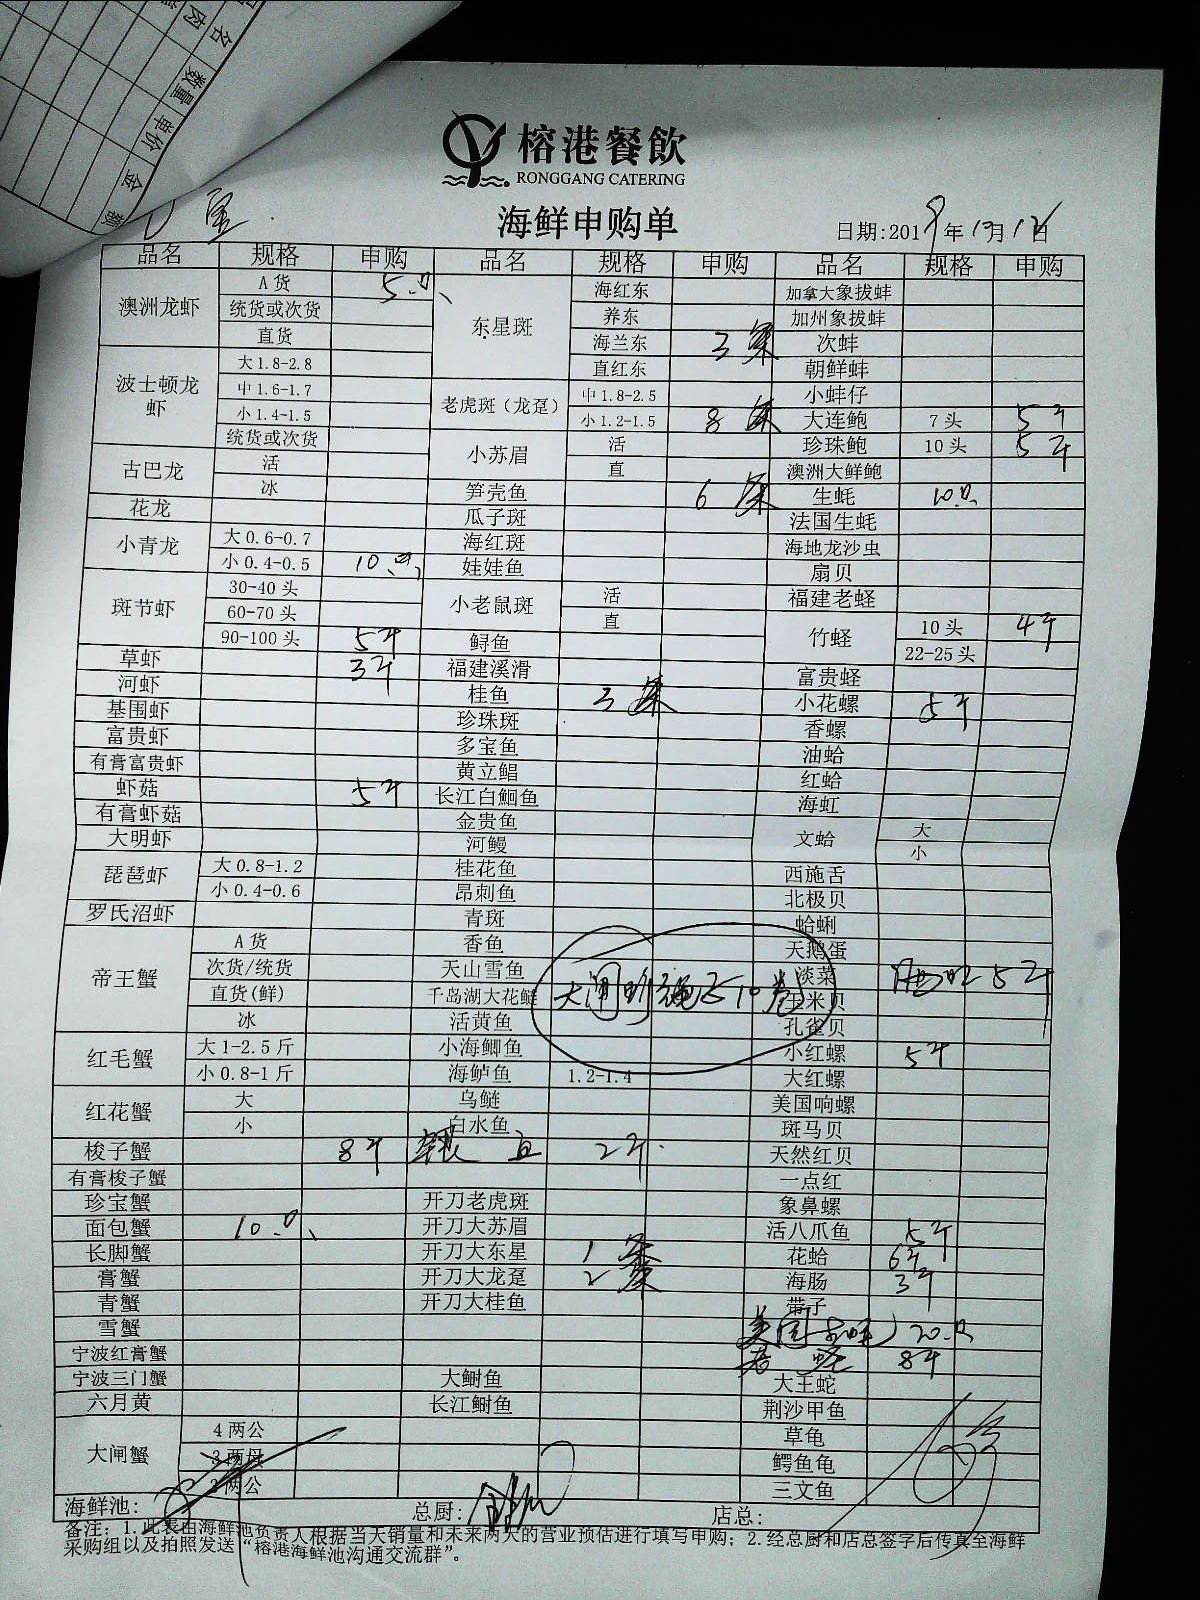 名
数量 单价 金额
榕港餐飲
RONGGANG CATERING
海鲜申购单
日期:2019年12月12日
品名 规格 申购 品名 规格 申购 品名 规格 申购
澳洲龙虾 A货 5只 东星斑 海红东 加拿大象拔蚌
统货或次货 养东 加州象拔蚌
直货 海兰东 3条 次蚌
波士顿龙虾 大1.8-2.8 直红东 朝鲜蚌
中1.6-1.7 老虎斑（龙趸） 中1.8-2.5 小蚌仔
小1.4-1.5 小1.2-1.5 8条 大连鲍 7头 5斤
统货或次货 小苏眉 活 珍珠鲍 10头 5斤
古巴龙 活 直 澳洲大鲜鲍
冰 笋壳鱼 6条 生蚝 10只
花龙 瓜子斑 法国生蚝
小青龙 大0.6-0.7 海红斑 海地龙沙虫
小0.4-0.5 10只 娃娃鱼 扇贝
斑节虾 30-40头 小老鼠斑 活 福建老蛏
60-70头 直 竹蛏 10头 4斤
90-100头 5斤 鲟鱼 22-25头
草虾 3斤 福建溪滑 富贵蛏
河虾 桂鱼 3条 小花螺 5斤
基围虾 珍珠斑 香螺
富贵虾 多宝鱼 油蛤
有膏富贵虾 黄立鲳 红蛤
虾菇 5斤 长江白鮰鱼 海虹
有膏虾菇 金贵鱼 文蛤 大
大明虾 河鳗 小
琵琶虾 大0.8-1.2 桂花鱼 西施舌
小0.4-0.6 昂刺鱼 北极贝
罗氏沼虾 青斑 蛤蜊
帝王蟹 A货 香鱼 天鹅蛋
次货/统货 天山雪鱼 淡菜 5斤
直货(鲜) 千岛湖大花鲢 大闸蟹绳子10卷 玉米贝
冰 活黄鱼 孔雀贝
红毛蟹 大1-2.5斤 小海鲫鱼 小红螺 5斤
小0.8-1斤 海鲈鱼 1.2-1.4 大红螺
红花蟹 大 乌鲢 美国响螺
小 白水鱼 斑马贝
梭子蟹 8斤 2斤 天然红贝
有膏梭子蟹 一点红
珍宝蟹 开刀老虎斑 象鼻螺
面包蟹 10只 开刀大苏眉 活八爪鱼 5斤
长脚蟹 开刀大东星 1条 花蛤 6斤
膏蟹 开刀大龙趸 2条 海肠 3斤
青蟹 开刀大桂鱼 带子
雪蟹 美国 20只
宁波红膏蟹 8斤
宁波三门蟹 大鲥鱼 大王蛇
六月黄 长江鲥鱼 荆沙甲鱼
大闸蟹 4两公 草龟
3两母 鳄鱼龟
2两公 三文鱼
海鲜池: 总厨: 店总:
备注: 1.此表由海鲜池负责人根据当天销量和未来两天的营业预估进行填写申购; 2.经总厨和店总签字后传真至海鲜
采购组以及拍照发送“榕港海鲜池沟通交流群”。